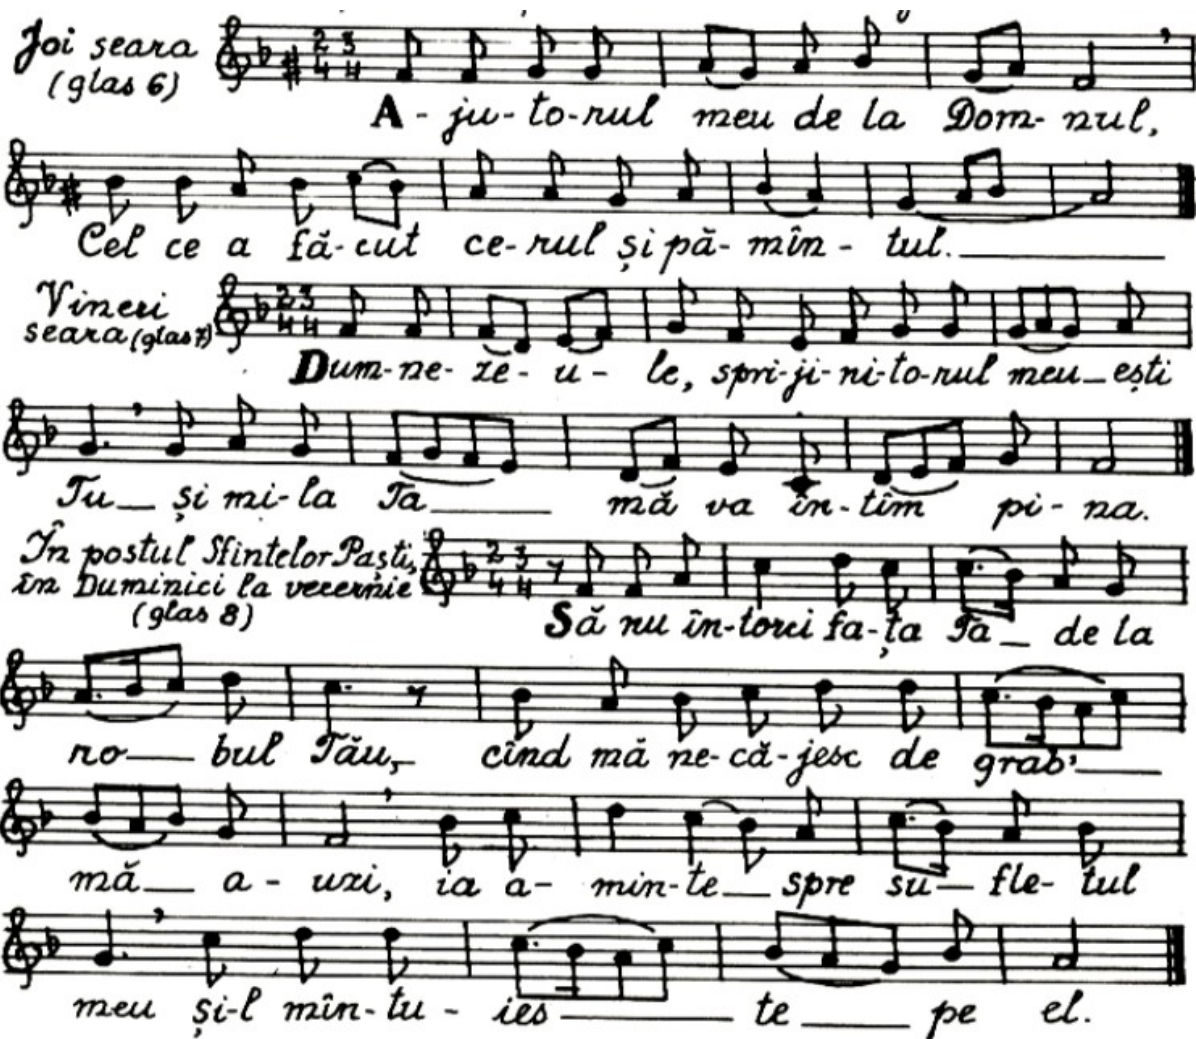 Joi seara
(glas 6)
2 3
4 4
A - ju - to - rul meu de la Dom - nul,
Cel ce a fă - cut ce - rul și pă - mîn - tul.
Vineri
seara (glas 7)
2 3
4 4
Dum - ne - ze - u - le, spri - ji - ni - to - rul meu ești
Tu și mi - la Ta mă va în - tîm pi - na.
În postul Sfintelor Paști,
în Duminici la vecernie
(glas 8)
2 3
4 4
Să nu în - torci fa - ța Ta de la
ro bul Tău, cînd mă ne - că - jesc de grab'
mă a - uzi, ia a - min - te spre su - fle - tul
meu și-l mîn - tu - ies te pe el.